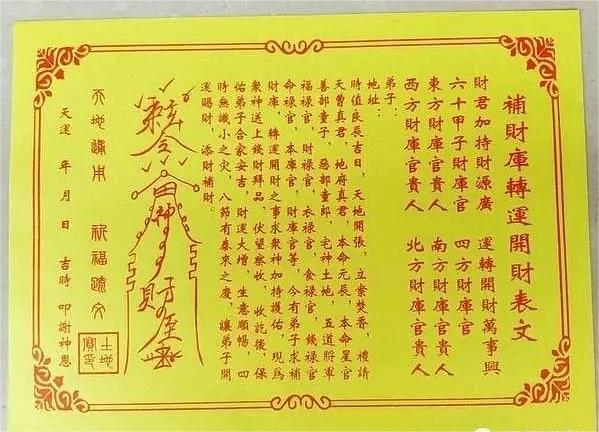 補財庫轉運開財表文
財君加持財源廣　運轉開財萬事興
六十甲子財庫官　四方財庫官
東方財庫官貴人　南方財庫官貴人
西方財庫官貴人　北方財庫官貴人
弟子：
地址：
時值良辰吉日，天地開張，立案焚香，禮請
天曹真君，地府真君，本命元辰，本命星官
善部童子，惡部童郎，宅神土地，五道將軍
福祿官，財祿官，衣祿官，食祿官，錢祿官
命祿官，本庫官，財庫官等，今有弟子求補
財庫，轉運開財之事求衆神加持護佑，現為
衆神送上錢財拜品，伏望察收，收訖後，保
佑弟子合家安吉，財運大增，生意順暢，四
時無識小之灾，八節有泰來之慶，讓弟子開
運賜財，添財補財。
天地通用　祈福疏文
土地寶印
天運　年　月　日　吉時　叩謝神恩